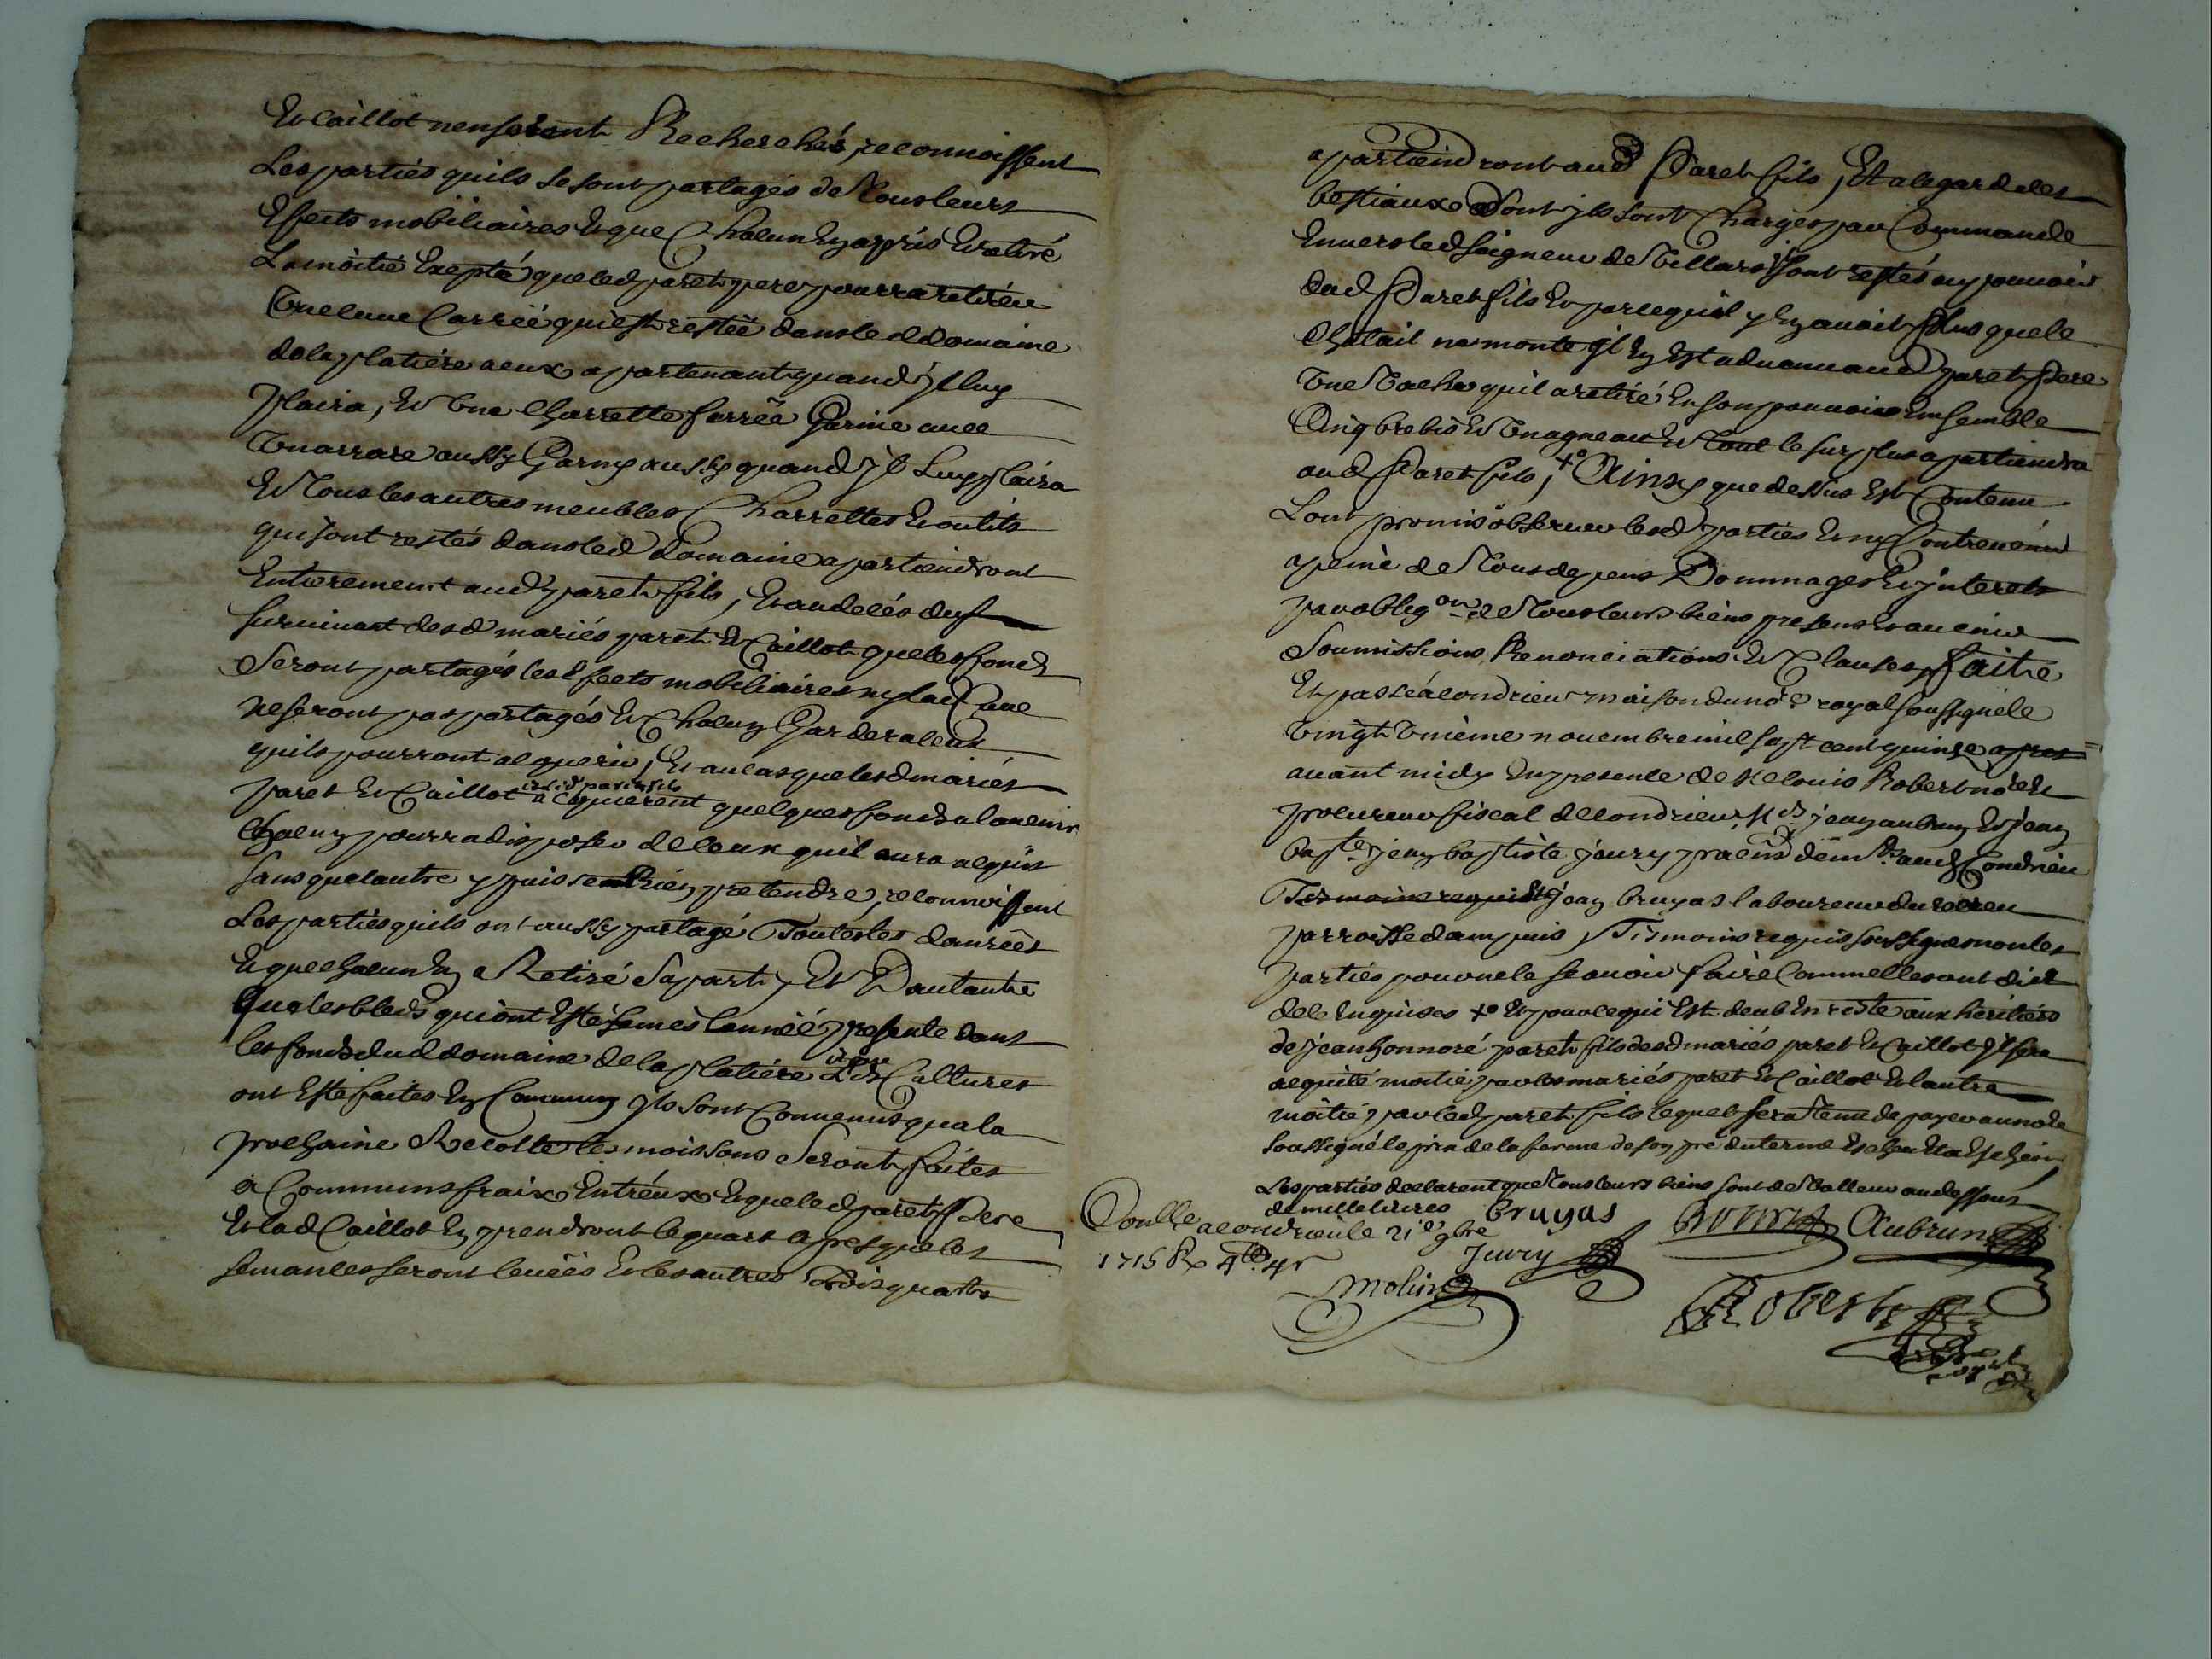 Et Caillot nen seront Recherchés, reconnoissent
Les parties quils se sont partagés de Tous leurs
Effects mobiliaires Et que Chacun En a pris Et retiré
La moitié Exepté que led paret pere pourra retirer
Une Cuve Carréé qui est restéé dans led domaine
de la platiére a eux apartenant quand Jl luy
plaira, Et Une Charrette ferréé Garnie avec
Un arrare aussy Garny aussy quand Jl Luy plaira
Et Tous les autres meubles Charrettes Et outils
qui sont restés dans led Domaine apartiendront
Entierement aud paret fils, Et au decés du
survivant desd mariés paret Et Caillot que les fonds
Seront partagés les Effects mobiliaires ny la Cave
ne seront pas partagés Et Chacun Gardera ceux
quils pourront acquerir, Et au cas que lesd mariés
paret Et Caillot et led paret fils acquierent quelques fonds a lavenir
Chacun pourra disposer de ceux quil aura acquis
sans que lautre y puisse Rien pretendre, reconnoissent
Les parties quils ont aussy partagé Toutes les danréés
Et que Chacun En a Retiré sa part, Et Dautantre
que les bleds qui ont Esté semés lannéé presente dans
les fonds dud domaine de la platiére Et que Les Cultures
ont Esté faites En Commun Jls sont Convenus qua la
prochaine Recolte les moissons Seront faites
a Communs fraix Entréux Et que led paret Pere
Et lad Caillot En prendront le quart apres que les
semances seront levéés Et les autres Trois quarts
apartiendront aud Paret fils, Et alegard des
bestiaux dont Jls sont Charges par Commande
Envers led seigneur de Villars Jls sont restés au pouvoir
dud Paret fils Et parcequil y En avoit Plus que le
Chetail ne monte Jl En Est advenu aud paret Pere
Une Vache quil a retiré En son pouvoir Ensemble
Cinq brebis Et Un agneau Et Tout le surplus apartiendra
aud Paret fils, +o Ainsy que dessus Est Contenu
Lont promis observer lesd parties Et ny Contrevenir
a peine de Tous depens Dommages Et Jnterets
par obligon de Tous leurs biens presens Et avenir
Soumissions Renonciations Et Clauses, faite
Et passéé a Condrieu maison du nore royal soussigné le
Vingt Unième novembre mil sept cent quinze apres
avant midy En presence de Me louis Robert nore Et
procureur fiscal de Condrieu, Jean aubrun Et Jean
Bapte Jean baptiste Joury praticien demts aud Condrieu
Tesmoins requis Et Jean bruyas laboureur du
parroisse dampuis, Tesmoins requis soussignes non les
parties pour ne le scavoir faire Comme elles ont dict
de ce Enquises +o Et pour ce qui Est deub En reste aux heritiers
de Jean honnoré paret fils desd mariés paret Et Caillot Jl sera
acquité moitié par les mariés paret Et Caillot Et lautre
moitié par led paret fils lequel sera Tenu de payer au nore
soussigné le prix de la ferme de son pré du terme Escheu Et a Escheoir
Les parties declarent que Tous leurs biens sont de Valleur au dessous
de mille livres
Bruyas
Aubrun
Conlle a Condrieu le 21e 9bre
1715 Rx 4ll 4s
Jury
Molin
Robert